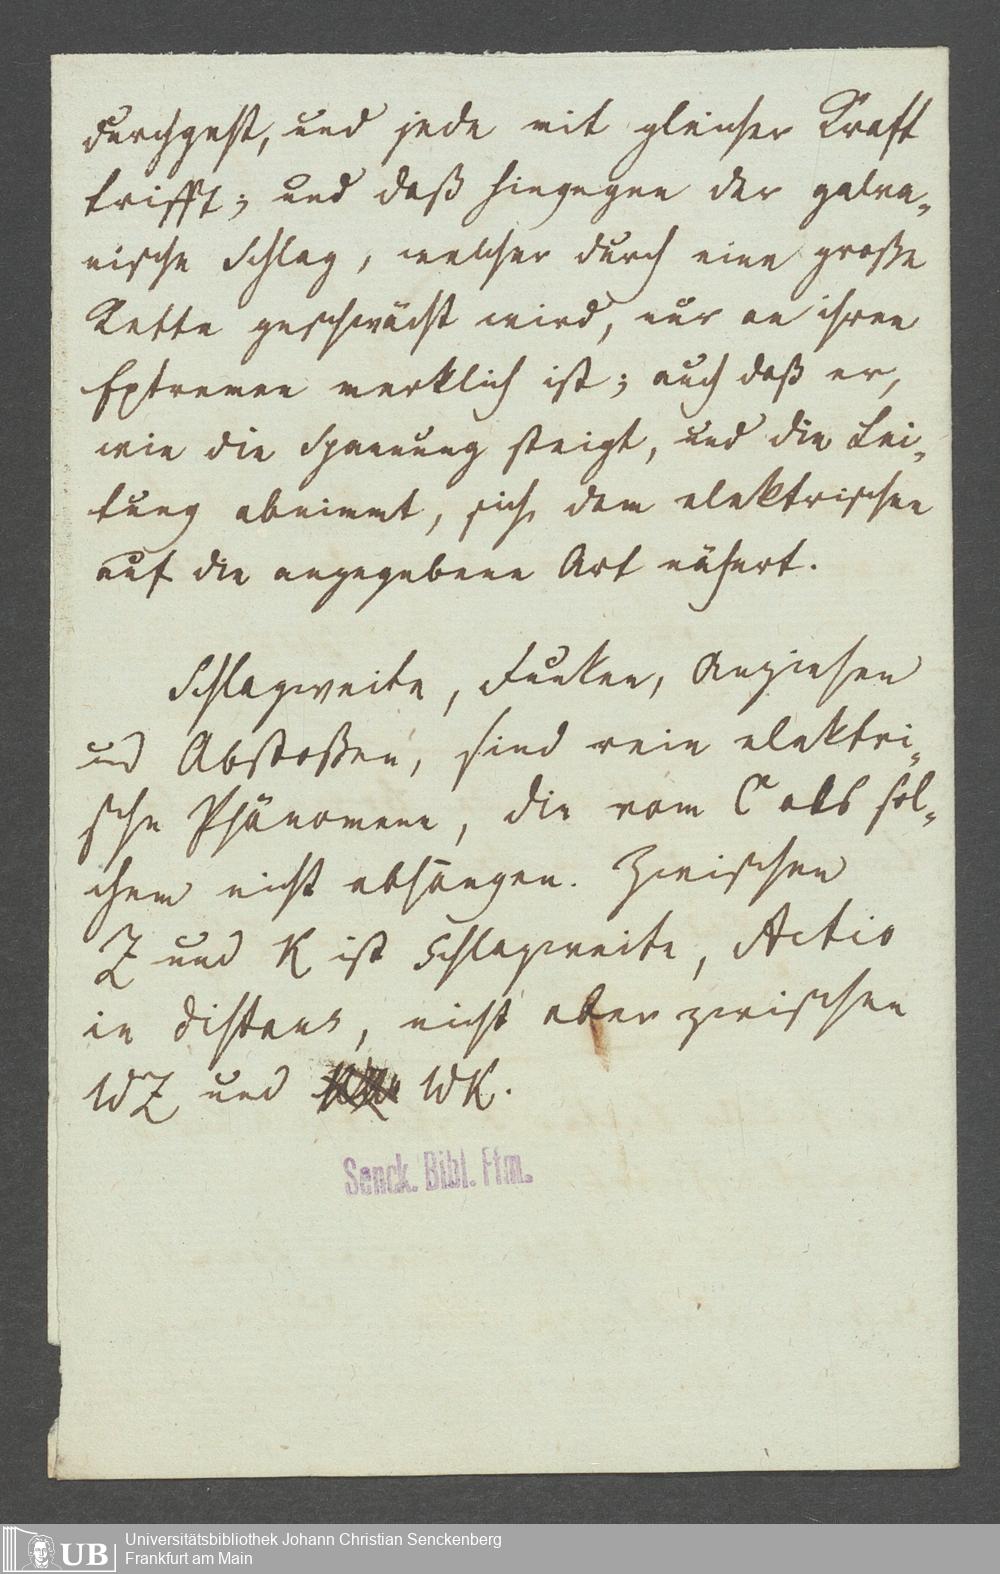 durchgeht, und jede mit gleicher Kraft
trifft; und daß hingegen der galva-
nische Schlag, welcher durch eine große
Kette geschwächt wird, nur an ihren
Extremen merklich ist; auch daß er,
wie die Spannung steigt, und die Lei-
tung abnimmt, sich dem elektrischen
auf die angegebene Art nähert.
Schlagweite, Funken, Anziehen
und Abstoßen, sind rein elektri-
sche Phänomene, die vom C als sol-
chem nicht abhängen. Zwischen
Z und K ist Schlagweite, Actio
in distans, nicht aber zwischen
WZ und WK.
Senck. Bibl. Ffm.
UB
Universitätsbibliothek Johann Christian Senckenberg
Frankfurt am Main